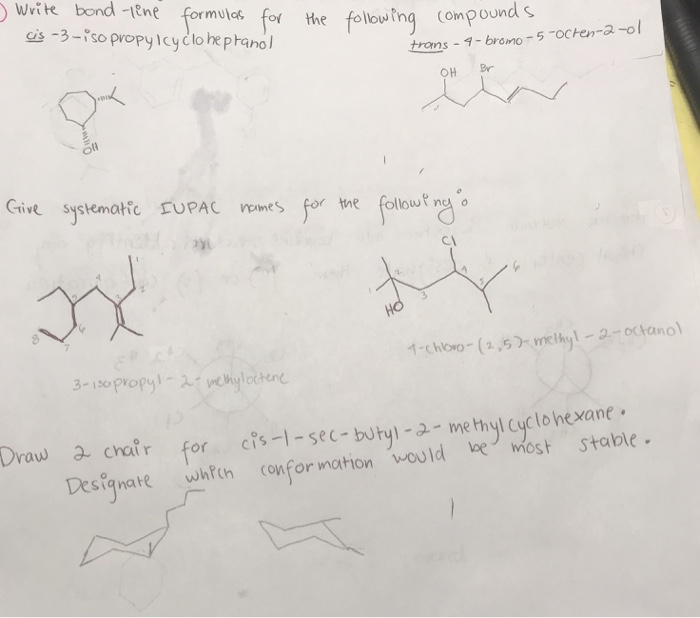 ) Write bond-line formulas for the following compounds
cis-3-isopropylcycloheptanol
trans-4-bromo-5-octen-2-ol
OH Br
OH
Give systematic IUPAC names for the following:
Cl
1 2 3 4 5 6
HO
1 2 3 4 6 7 8
4-chloro-(2,5)-methyl-2-octanol
3-isopropyl-2-methyloctene
Draw 2 chair for cis-1-sec-butyl-2-methylcyclohexane.
Designate which conformation would be most stable.